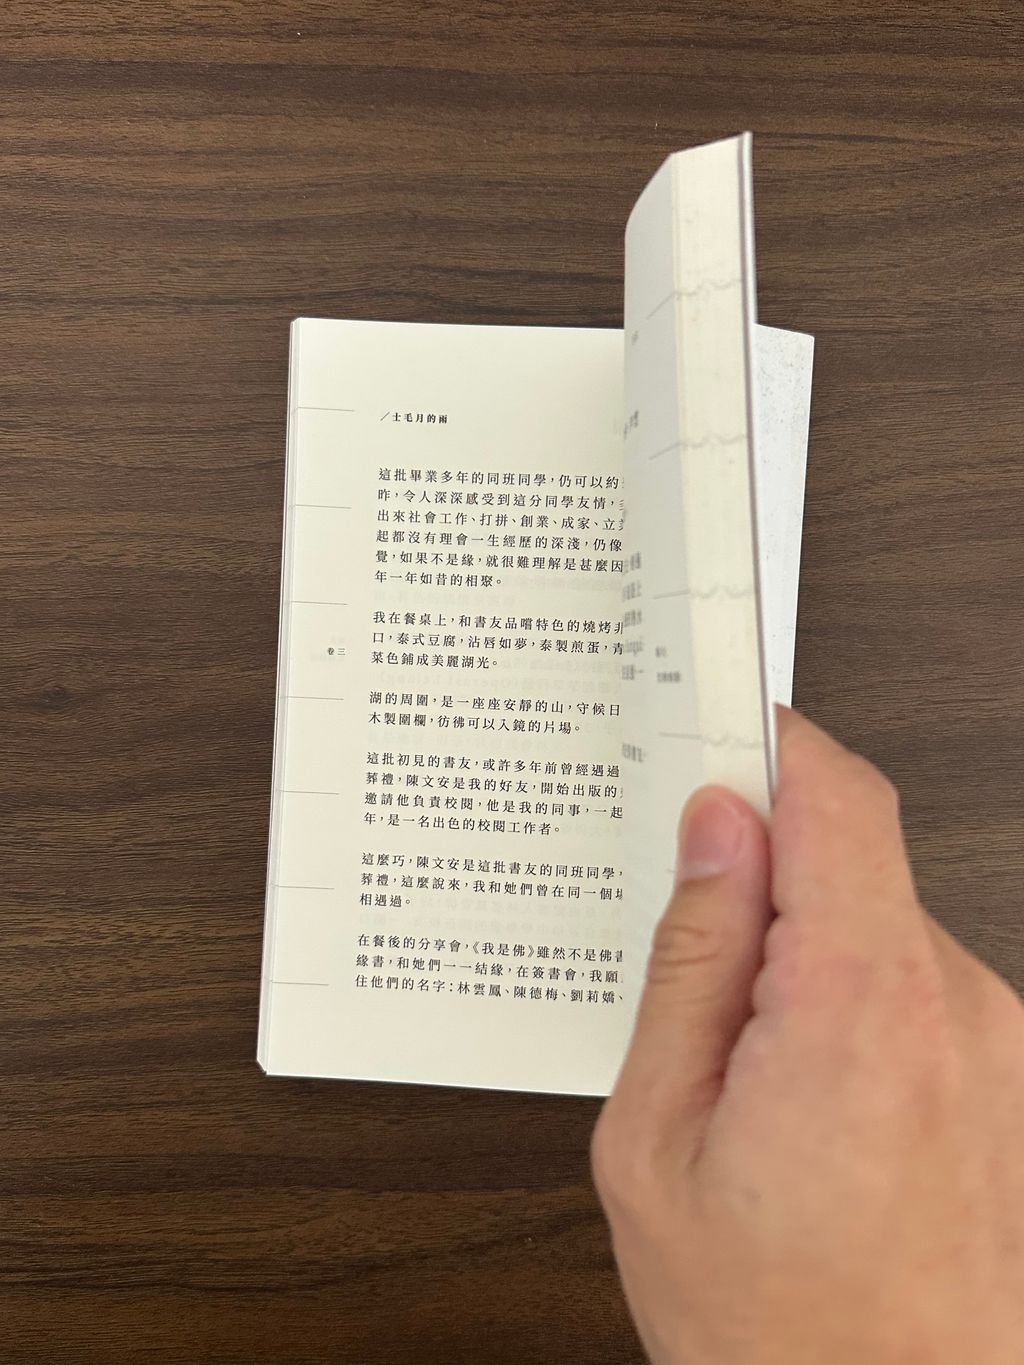 ／士毛月的雨
這批畢業多年的同班同學，仍可以約
昨，令人深深感受到這分同學友情，
出來社會工作、打拼、創業、成家、立
起都沒有理會一生經歷的深淺，仍像
覺，如果不是緣，就很難理解是甚麼因
年一年如昔的相聚。
我在餐桌上，和書友品嚐特色的燒烤非
口，泰式豆腐，沾唇如夢，泰製煎蛋，青
菜色鋪成美麗湖光。
卷三
湖的周圍，是一座座安靜的山，守候日
木製圍欄，彷彿可以入鏡的片場。
這批初見的書友，或許多年前曾經遇過
葬禮，陳文安是我的好友，開始出版的
邀請他負責校閱，他是我的同事，一起
年，是一名出色的校閱工作者。
這麼巧，陳文安是這批書友的同班同學，
葬禮，這麼說來，我和她們曾在同一個場
相遇過。
在餐後的分享會，《我是佛》雖然不是佛書
緣書，和她們一一結緣，在簽書會，我願
住他們的名字：林雲鳳、陳德梅、劉莉嬌、